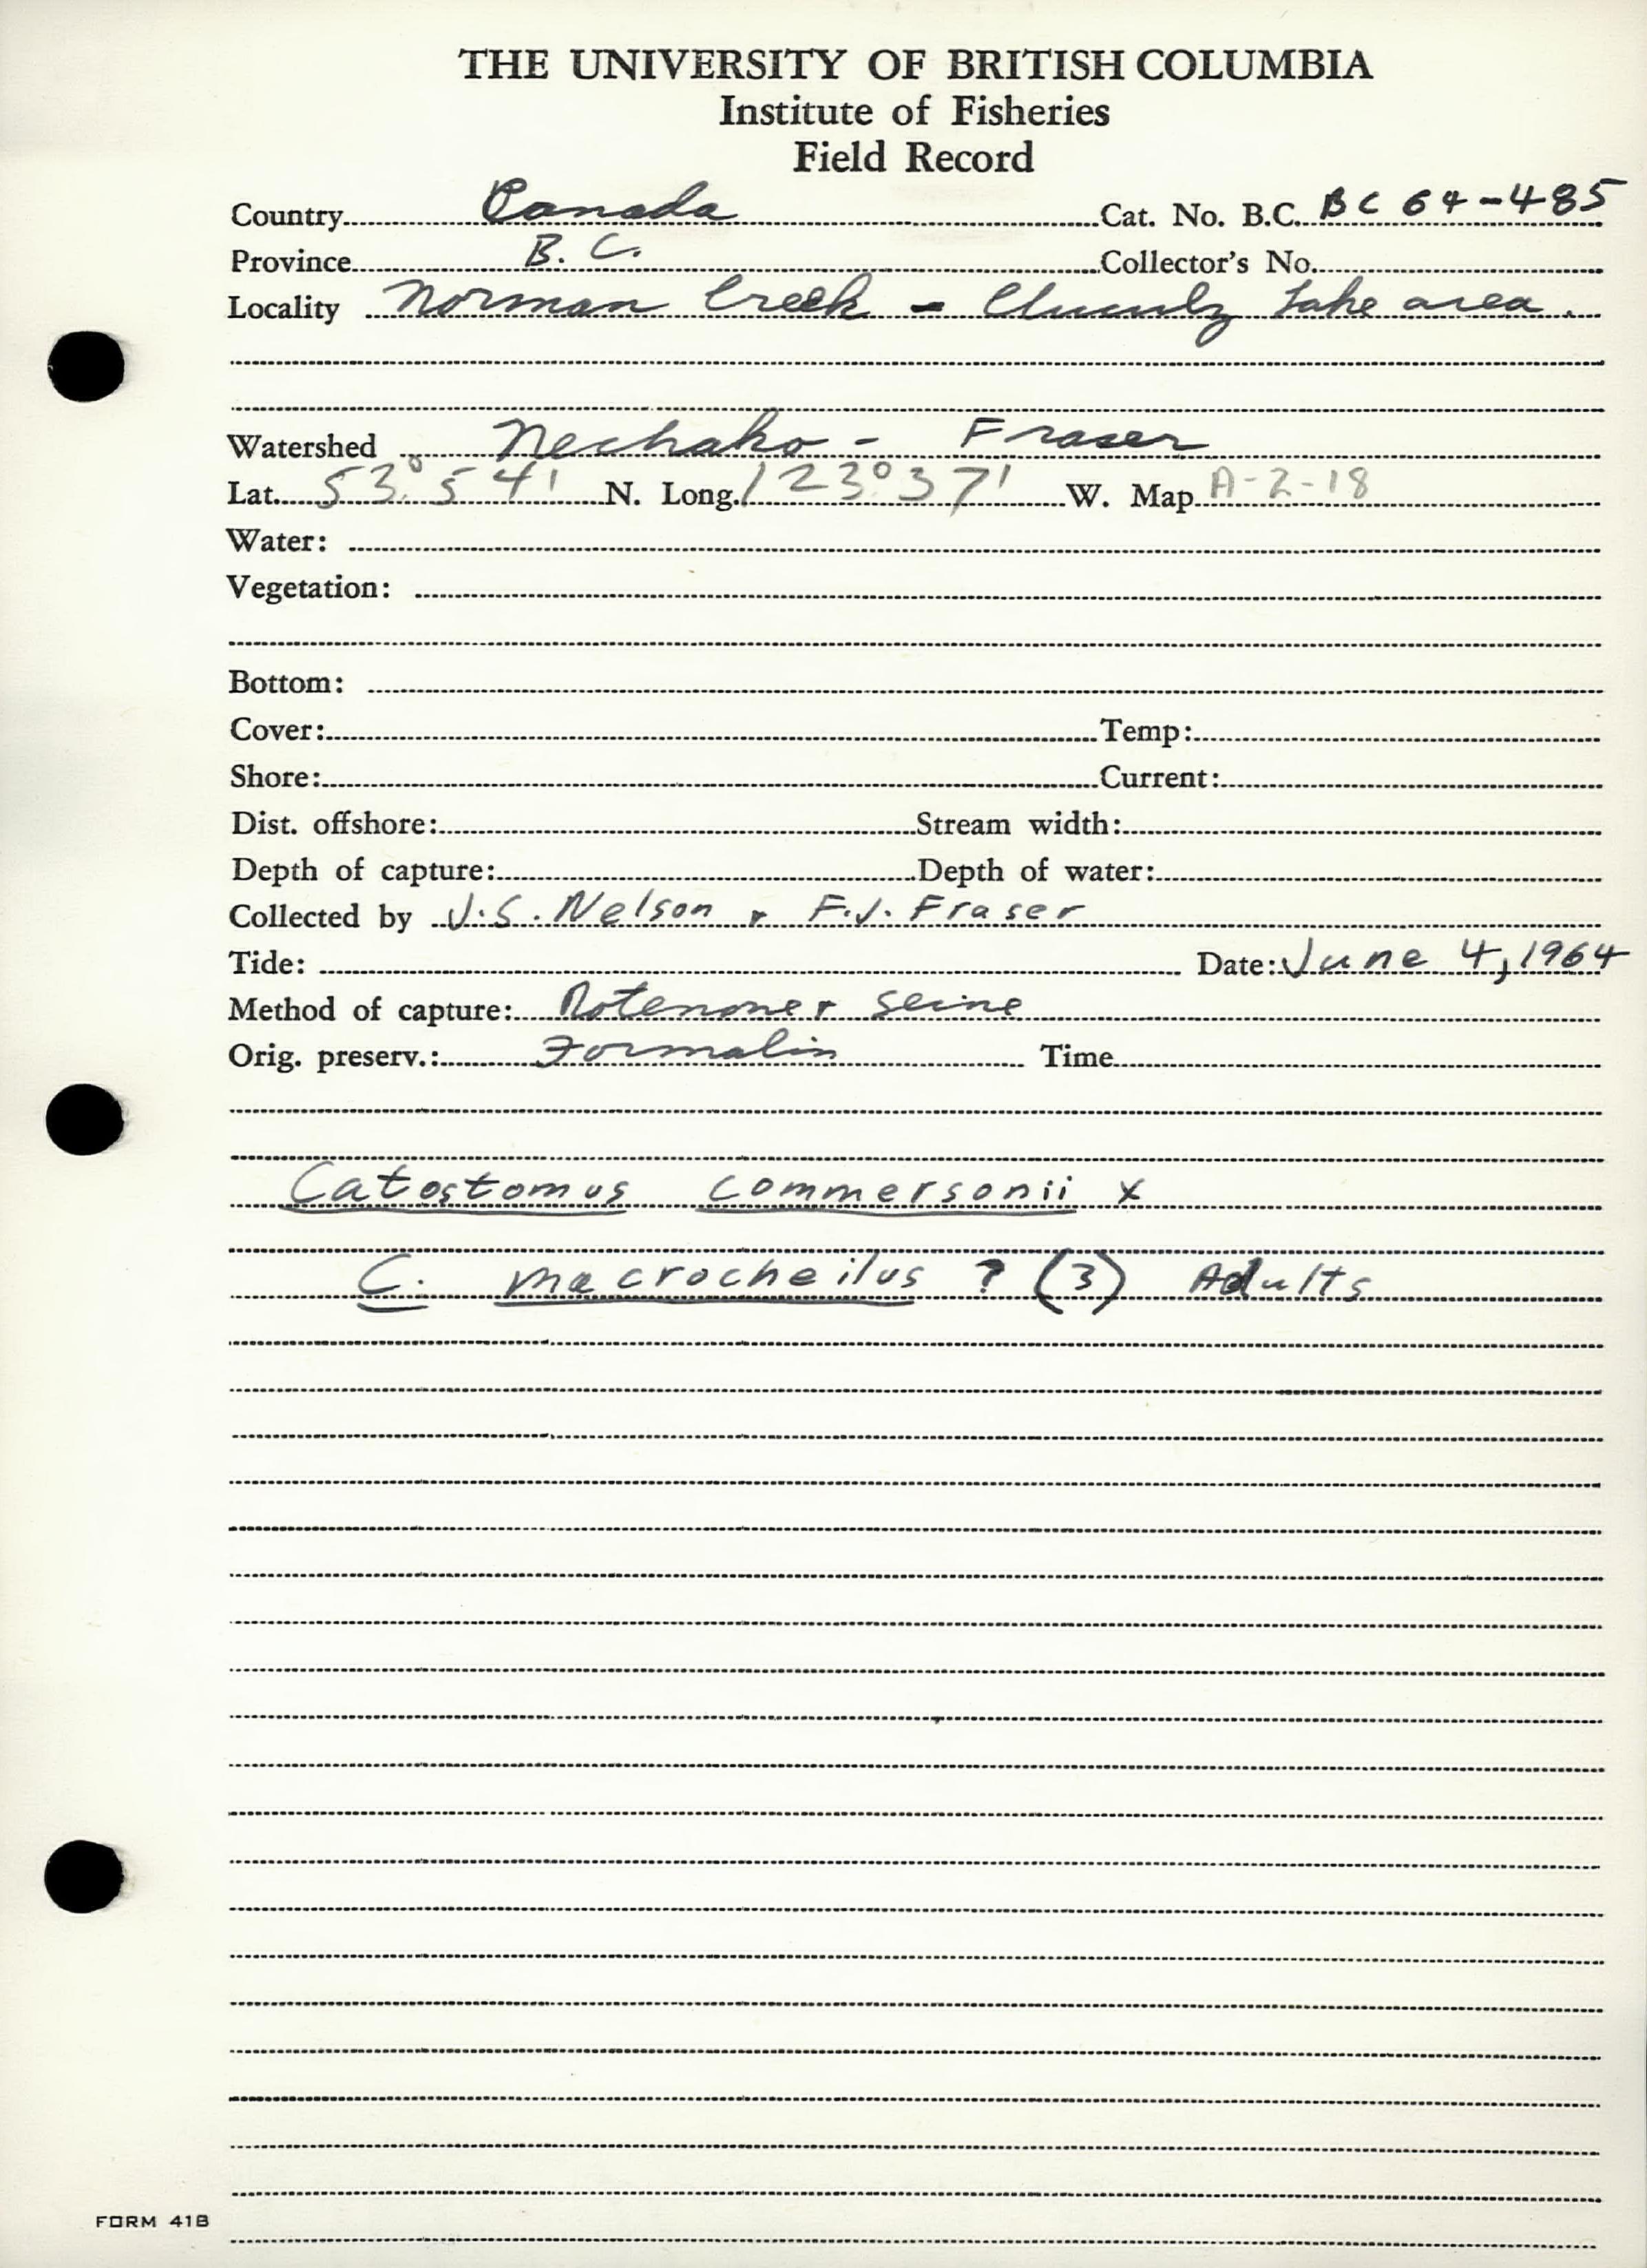 THE UNIVERSITY OF BRITISH COLUMBIA
Institute of Fisheries
Field Record
Country Canada Cat. No. B.C. BC 64-485
Province B. C. Collector's No.
Locality Norman Creek - Cluculz Lake area.
Watershed Nechako - Fraser
Lat. 53° 54' N. Long. 123° 37' W. Map A-2-18
Water:
Vegetation:
Bottom:
Cover: Temp:
Shore: Current:
Dist. offshore: Stream width:
Depth of capture: Depth of water:
Collected by J.S. Nelson & F.J. Fraser
Tide: Date: June 4, 1964
Method of capture: Rotenone & seine
Orig. preserv.: Formalin Time
Catostomus commersonii x
C. macrocheilus ? (3) Adults
FORM 41B